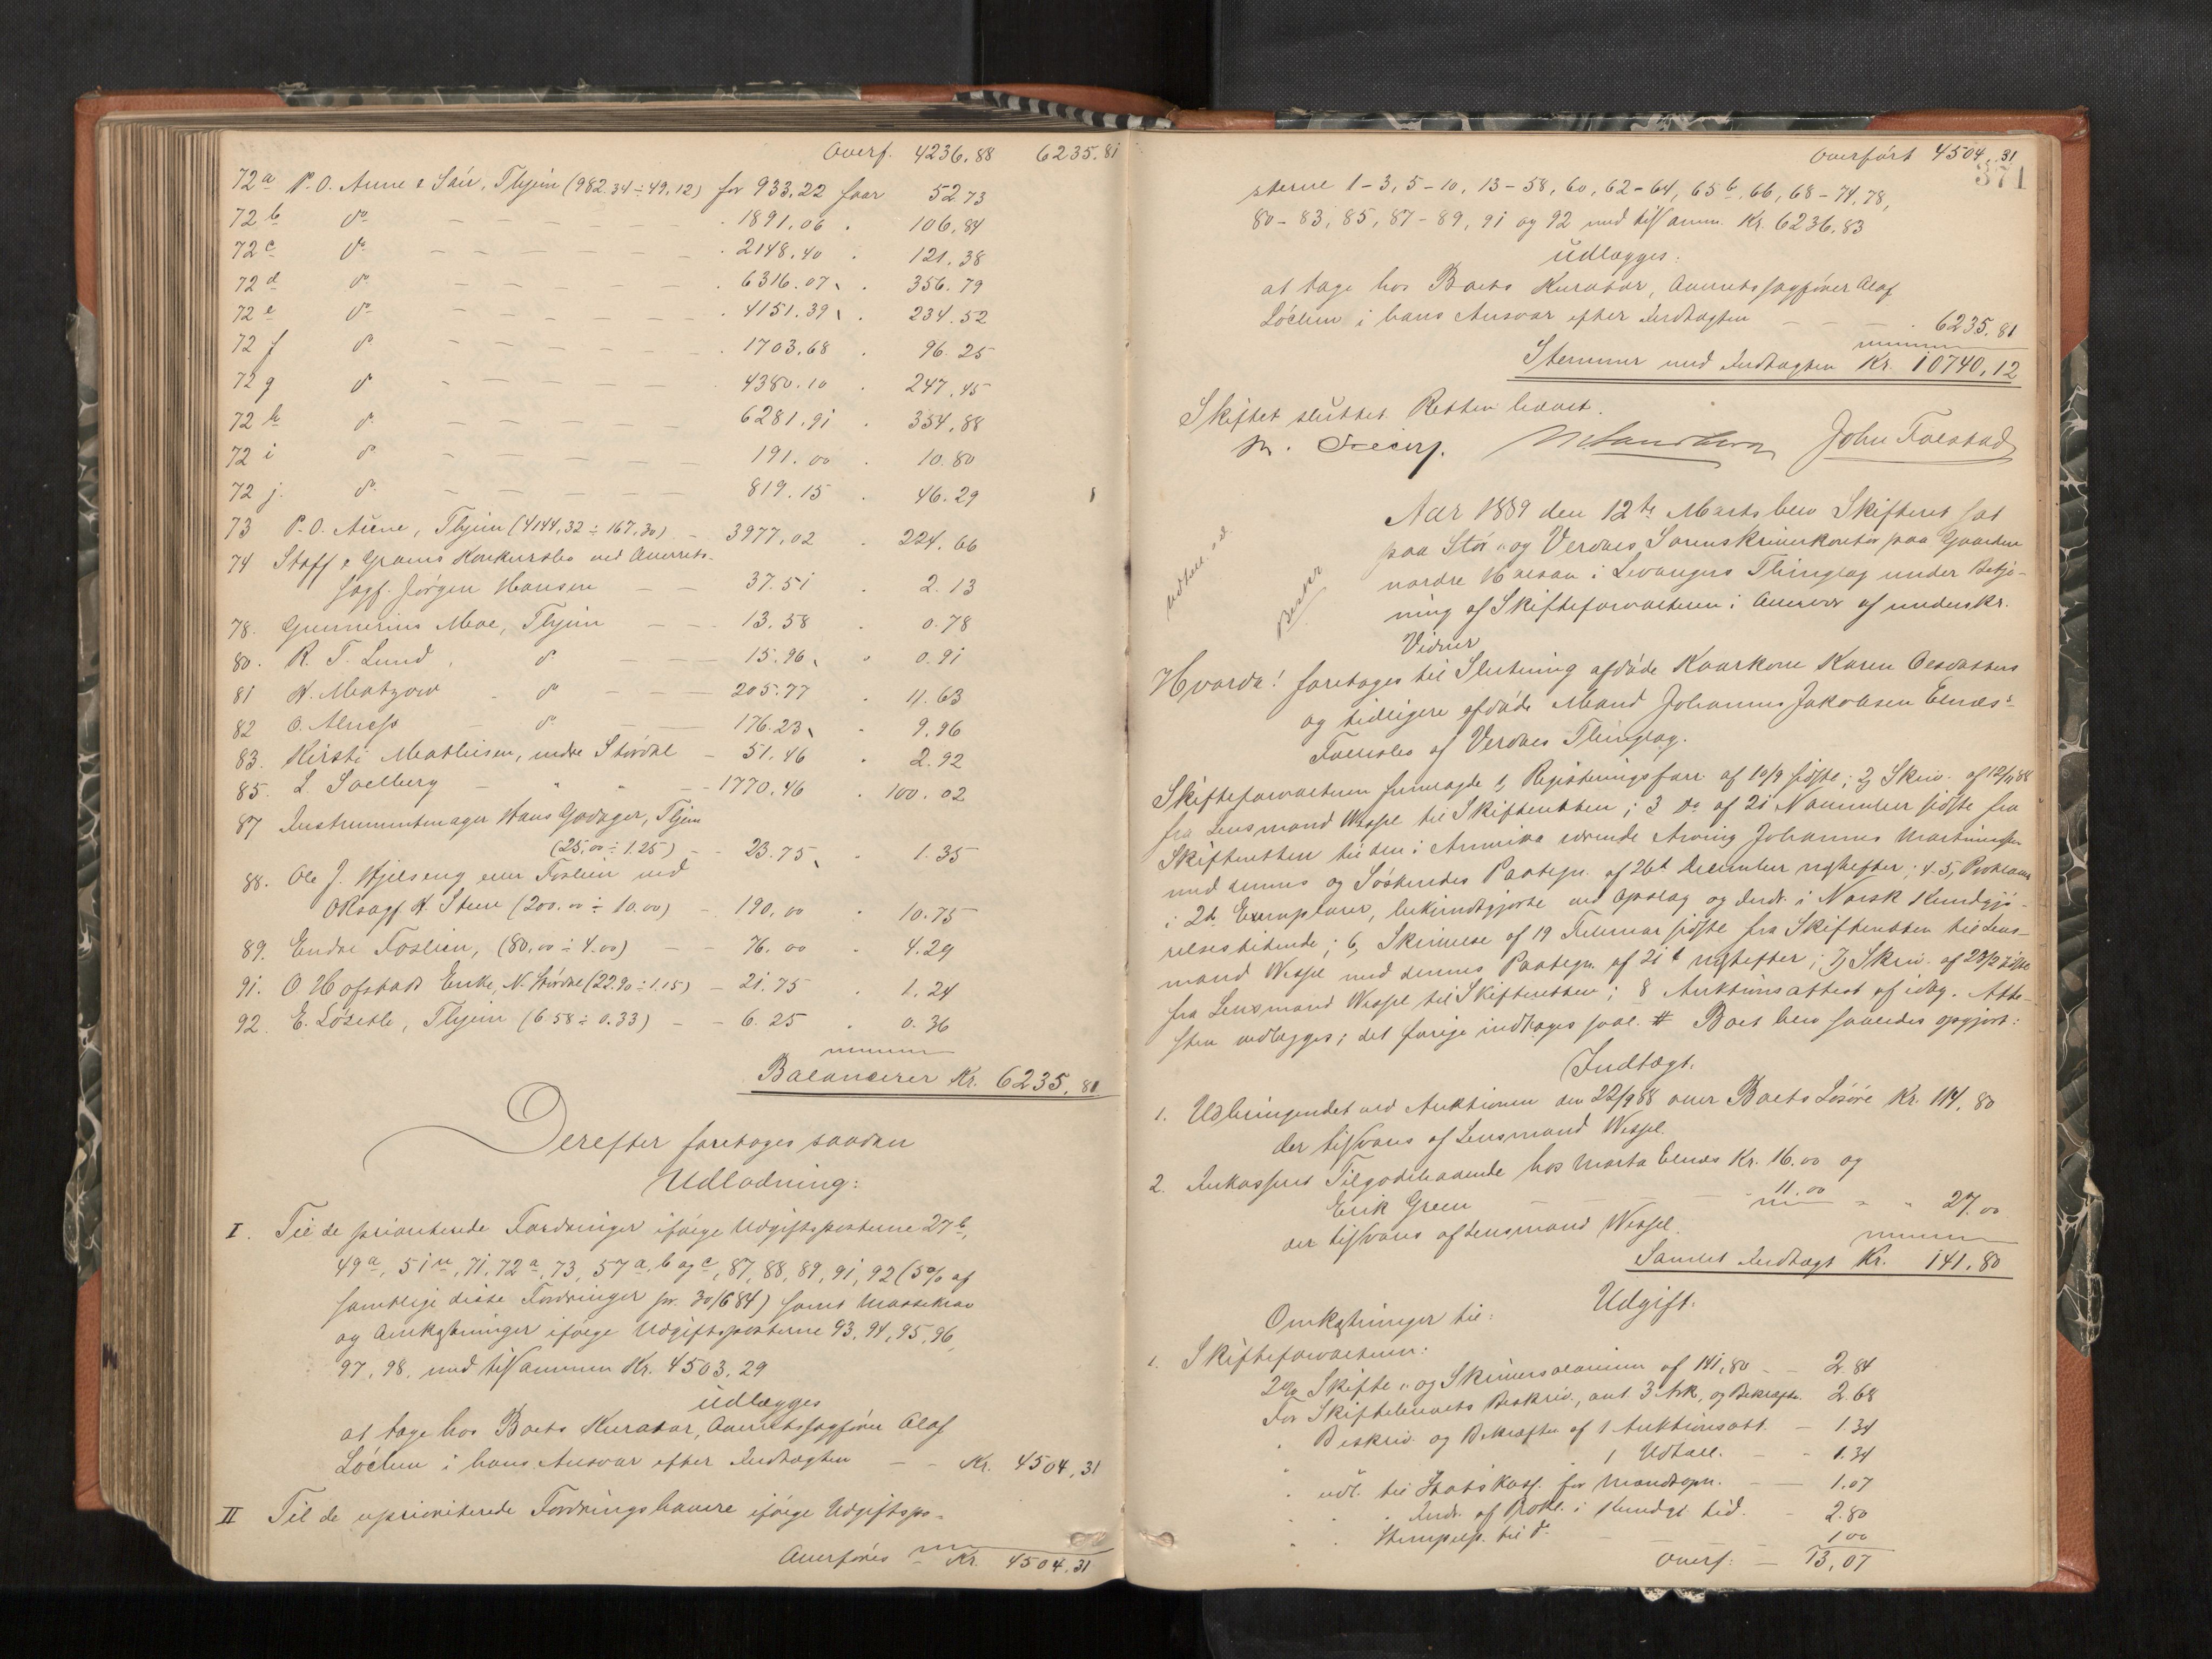 Overf. 4236.88 6235.81
72a P. O. Aune & Søn, Thjem (982.34 ÷ 49.12) for 933.22 faar 52.73
72b do - - - - - - 1891.06 . 106.84
72c do - - - - - - 2148.40 . 121.38
72d do - - - - - - 6316.07 . 356.79
72e do - - - - - - 4151.39 . 234.52
72f do - - - - - - 1703.68 . 96.25
72g do - - - - - - 4380.10 . 247.45
72h do - - - - - - 6281.91 . 354.88
72i do - - - - - - 191.00 . 10.80
72j. do - - - - - - 819.15 . 46.29
73 P. O. Aune, Thjem (4144,32 ÷ 167,30) - 3977.02 . 224.66
74 Staff & Grams Konkursbo ved Overrets-
sagf. Jørgen Hansen - - 37.51 . 2.13
78. Gunnerius Moe, Thjem - - - 13.58 . 0.78
80. R. T. Lund, do - - - 15.96 . 0.91
81 H. Matzow - do - - - 205.77 . 11.63
82 O. Alness - do - - 176.23 . 9.96
83. Kirsti Mathisen, nedre Stördal - 51.46 . 2.92
85. L. Solberg - " " - 1770.46 . 100.02
87 Instrumentmager Hans Godager, Thjem
(25,00 ÷ 1.25) - - 23.75 . 1.35
88. Ole J. Hjelseng eller Foslien ved
ORsagf. K. Steen (200.00 ÷ 10.00) - 190,00 . 10.75
89. Endre Foslien, (80.00 ÷ 4.00) - - 76.00 . 4.29
91. O Hofstads Enke, N. Stördal (22.90 ÷ 1.15) - 21.75 . 1.24
92. E. Løseth, Thjem (6 58 ÷ 0.33) - - 6.25 . 0.36
Balancerer Kr. 6235.81
Derefter foretoges saadan
Udlodning:
I. Til de prioriterede Fordringer ifølge Udgiftsposterne 27b,
49a, 51, 71, 72a, 73, 57a, b og c, 87, 88, 89, 91, 92 (5% af
samtlige disse Fordringer pr. 30/6 84) samt Massekrav
og Omkostninger ifølge Udgiftsposterne 93, 94, 95, 96,
97, 98, med tilsammen Kr. 4503.29
udlægges
at tage hos Boets Kurator, Overretssagfører Olaf
Löchen i hans Ansvar efter Indtægten - - Kr. 4504,31
II Til de uprioriterede Fordringshavere ifølge Udgiftspo-
Overføres Kr. 4504.31
Overført 4504.31
371
sterne 1-3, 5-10, 13-58, 60, 62-64, 65b, 66, 68-74, 78,
80-83, 85, 87-89, 91 og 92 med tilsamm. Kr. 6236.83
udlægges:
at tage hos Boets Kurator, Overretssagfører Olaf
Löchen i hans Ansvar efter Indtægten - - - . 6235.81
Stemmer med Indtægten Kr. 10740,12
Skiftet sluttet. Retten hævet.
John Folstad
Aar 1889 den 12te Marts blev Skifteret sat
paa Stör- og Verdals Sorenskriverkontor paa Gaarden
nordre i Levangers Thinglag under Betje-
ning af Skifteforvalteren i Overvær af underskr.
Vidner
Udhæv. ad
Beskr
Hvorda! foretoges til Slutning afdøde Kaarkone Karen Olesdatters
og tidligere afdøde Mand Johannes Jakobsen Elnæs's
Fællesbo af Verdals Thinglag.
Skifteforvalteren fremlagde 1, Registreringsforr. af 10/9 sidste; 2, Skriv. af 12/11 88
fra Lensmand Wessel til Skifteretten; 3 do af 21 November sidste fra
Skifteretten til den i Amerika værende Arving Johannes
med dennes og Søskendes Paategn. af 26t December næstefter; 4-5, Proklama
i 2de Exemplarer, bekjendtgjorte ved Opslag og Indr. i Norsk Kundgjø-
relsestidende; 6, Skrivelse af 19 Februar sidste fra Skifteretten til Lens-
mand Wessel med dennes Paategn. af 21t næstefter; 7, Skriv. af 23/2 sidste
fra Lensmand Wessel til Skifteretten; 8 Auktionsattest af idag. Atte-
sten vedlægges; det øvrige indtages saal. # Boet blev saaledes opgjort:
Indtægt.
1. Udbringendet ved Auktionen den 22/9 88 over Boets Løsøre Kr. 114,80
der tilsvares af Lensmand Wessel.
2. Inkasseret Tilgodehavende hos Marta Elnæs Kr. 16.00 og
Erik Green - - - - 11.00 " " 27.00
der tilsvares af Lensmand Wessel.
Samlet Indtægt Kr. 141,80
Udgift.
Omkostninger til:
1. Skifteforvalteren:
2% Skifte- og Skriversalarium af 141,80 - - 2.84
For Skiftebrevets Beskriv., ant. 3 Ark, og Bekræft. 2.68
" Beskriv. og Bekræften af 1 Auktionsatt. - 1.34
" " 1 Udtæll. - - 1.34
" udl. til Statskass. for Mandtopn. - - 1.07
" " Indr. af Prokl. i Kundgj. tid. - 2.80
" " Stempelp. til do 1 00
Overf. - 13,07